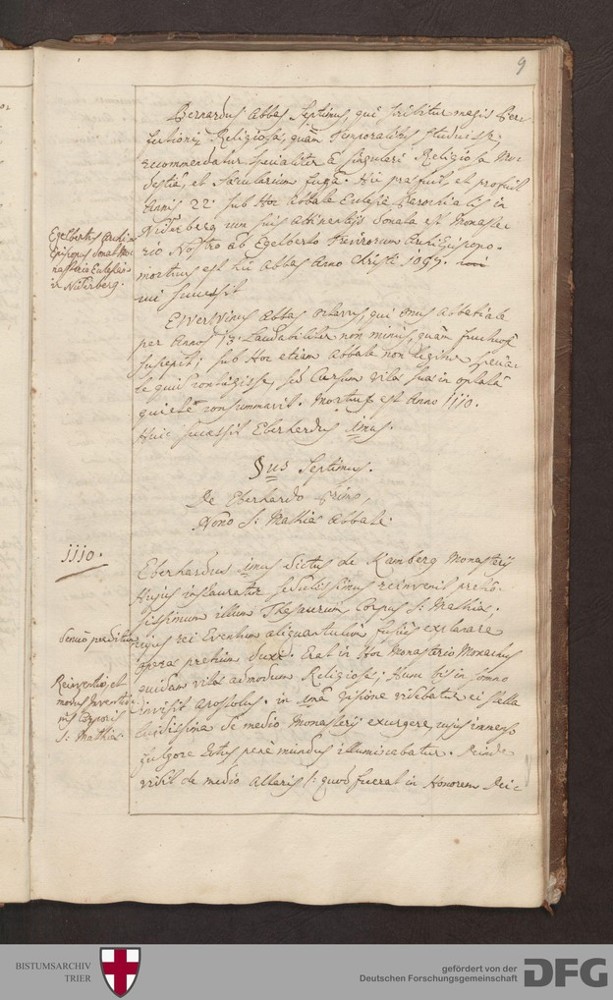 9
Bernardus Abbas Septimus, qui scribitur magis Per-
fectioni Religiosæ, quàm Temporalibus studuisse,
recommendatur specialiter à singulari Religiosa Mo-
destiâ, et sæcularium fugâ. Hic præfuit, et profuit
Annis 22. sub Hoc Abbate Ecclesia Parochialis in
Nürnberg cum suis Attinentiis Donata est Monaste-
rio Nostro ab Egelberto Trevirorum Archiepiscopo.
mortuus est hic Abbas Anno Christi 1099.
cui successit
Egelbertus Archi-
Episcopus donat Mo-
nasterio Ecclesia
in Nürberg.
Abbas octavus, qui onus Abbatiale
per Annos 13. Laudabiliter non minus, quàm
suscepit; sub Hoc etiam Abbate non legitur specia-
le quid contigisse, sed Cursum vitæ suæ in optatâ
quiete consummavit. Mortuus est Anno 1110.
Huic successit Eberhardus 1mus.
§us Septimus.
De Eberhardo Primo,
Nono S: Mathiæ Abbate.
1110.
Eberhardus 1mus dictus de Kamberg Monasterij
Hujus instaurator sedulissimus reinvenit pretio-
sissimum illum Thesaurum Corpus S: Mathiæ.
cujus rei Eventum aliquantulum fusius explanare
operæ pretium duxi. Erat in Hoc Monasterio Monachus
quidam vitæ admodum Religiosæ; Hunc bis in somno
invisit Apostolus. in unâ visione videbatur ei stella
lucidissima de medio Monasterij exurgere, cujus immenso
fulgore totus penè mundus illuminabatur. Deinde
vidit de medio Altaris /: quod fuerat in Honorem Dei-
Reinventio, et
modus Inventio-
nis Corporis
S: Mathiæ.
BISTUMSARCHIV
TRIER
gefördert von der
Deutschen Forschungsgemeinschaft
DFG